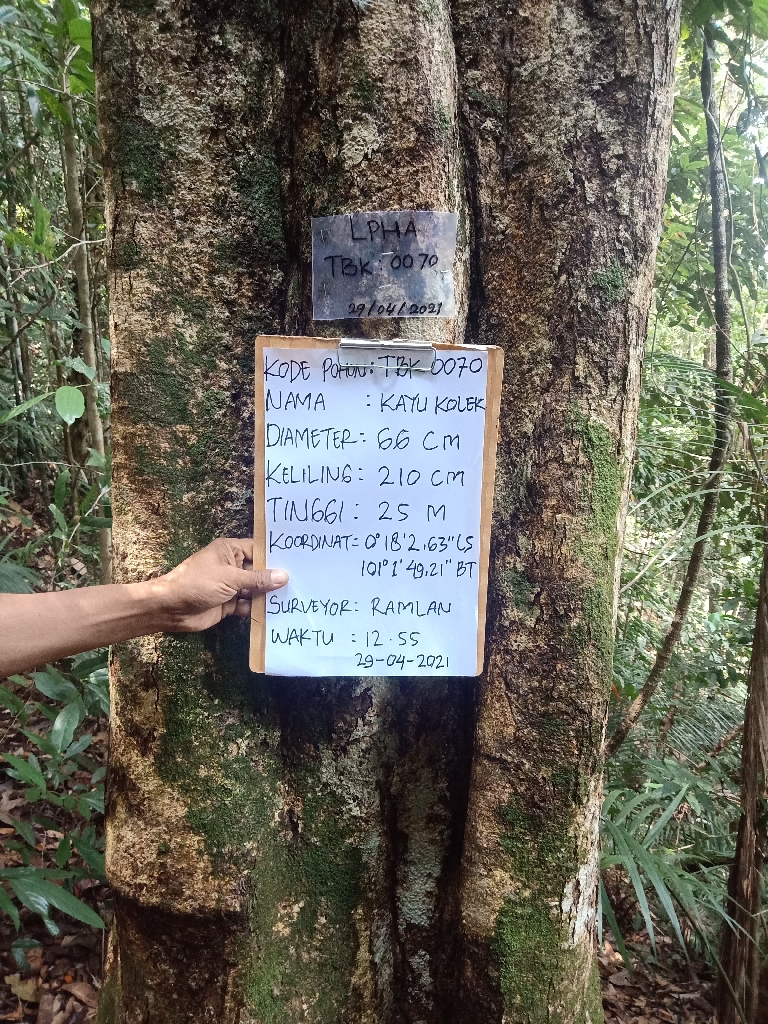 LPHA
TBK: 0070
29/04/2021
KODE POHON: TBK 0070
NAMA : KAYU KOLEK
DIAMETER: 66 CM
KELILING: 210 CM
TINGGI: 25 M
KOORDINAT= 0° 18' 2.63" LS
101° 1' 49.21" BT
SURVEYOR: RAMLAN
WAKTU : 12.55
29-04-2021